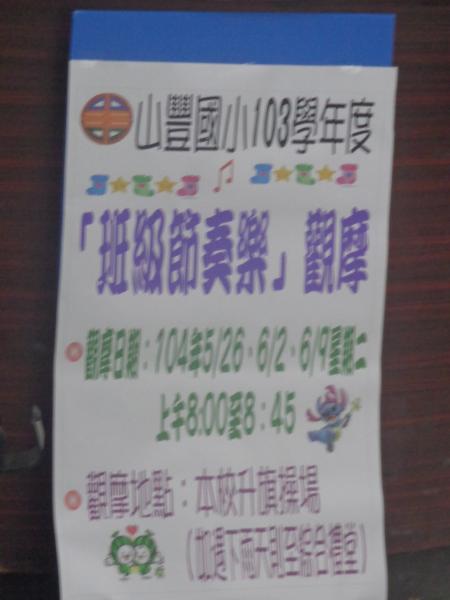 山豐國小103學年度
「班級節奏樂」觀摩
觀摩日期：104年5/26、6/2、6/9星期二
上午8:00至8：45
觀摩地點：本校升旗操場
（如遇下雨天則至綜合禮堂）